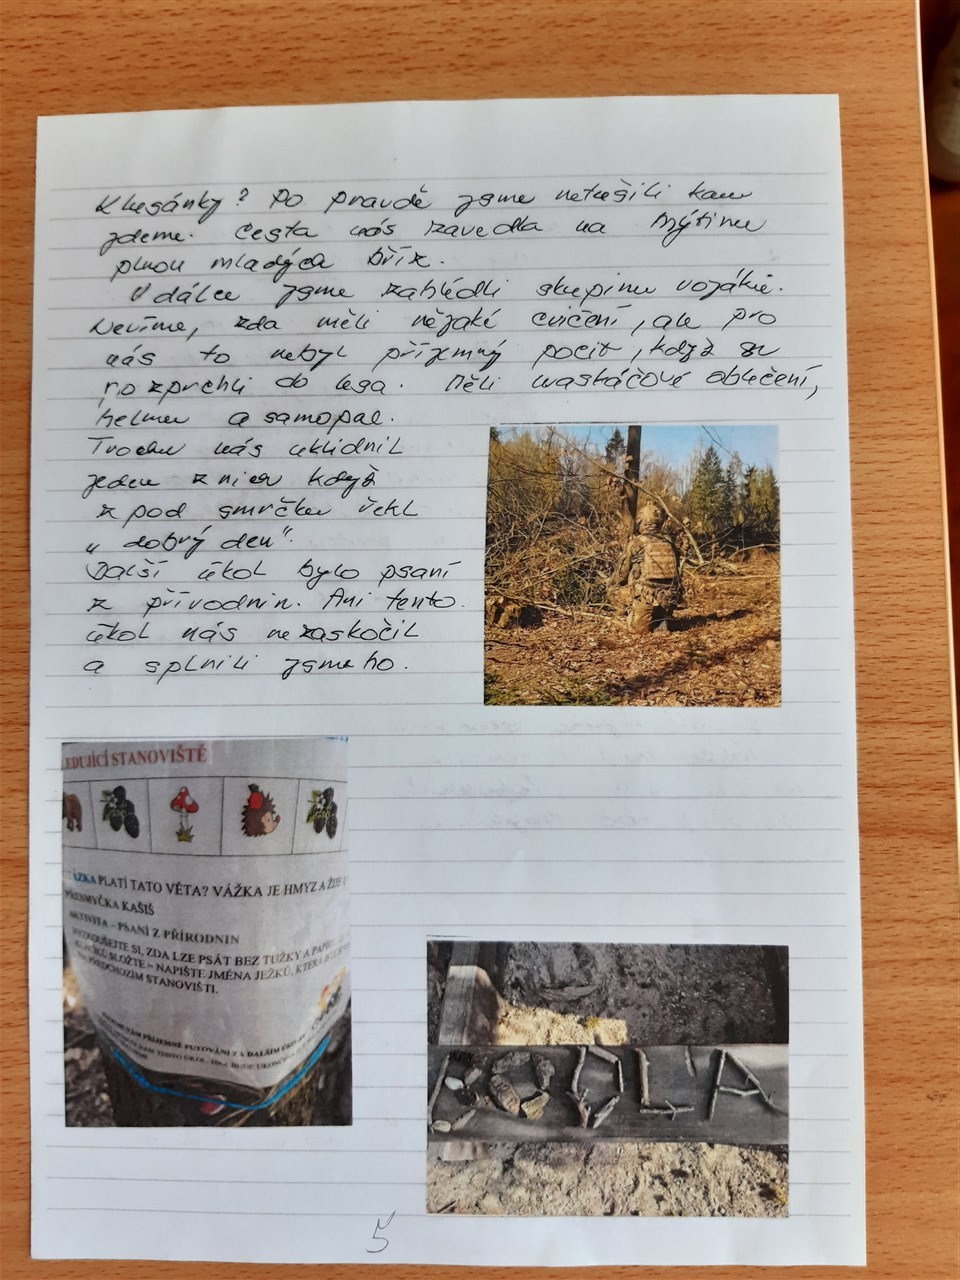 Klusánky? Po pravdě jsme netušili kam
jdeme. Cesta nás zavedla na mýtinu
plnou mladých bříz.
V dálce jsme zahlédli skupinu vojáků.
Nevíme, zda měli nějaké cvičení, ale pro
nás to nebyl příjemný pocit, když se
rozprchli do lesa. Měli maskáčové oblečení,
helmu a samopal.
Trochu nás uklidnil
jeden z nich když
z pod smrčku řekl
„dobrý den".
Další úkol bylo psaní
z přírodnin. Ani tento
úkol nás nezaskočil
a splnili jsme ho.
EDUJÍCÍ STANOVIŠTĚ
ÁZKA PLATÍ TATO VĚTA? VÁŽKA JE HMYZ A ŽIJE
PŘESMYČKA KAŠIŠ
AKTIVITA – PSANÍ Z PŘÍRODNIN
VYZKOUŠEJTE SI, ZDA LZE PSÁT BEZ TUŽKY A
SLOŽTE – NAPIŠTE JMÉNA JEŽKŮ,
PŘEDCHOZÍM STANOVIŠTI.
PŘÍJEMNÉ PUTOVÁNÍ ZA DALŠÍM
5